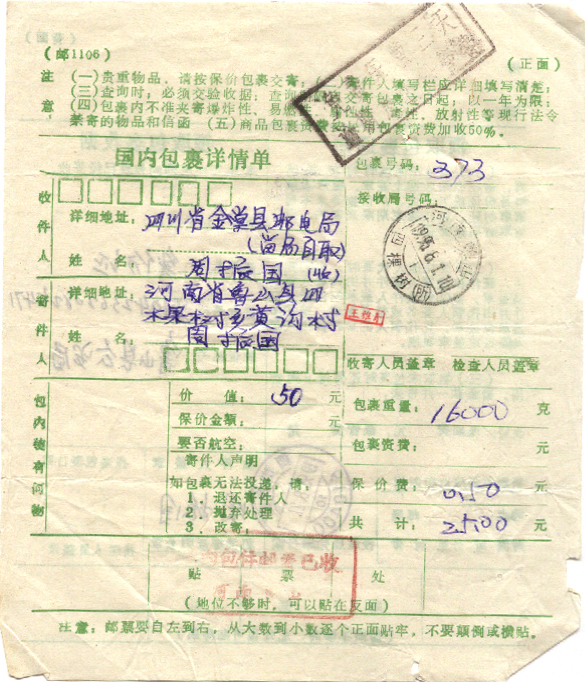 (邮1106)
(正面)
注意:
(一)贵重物品,请按保价包裹交寄;(二)寄件人填写栏应详细填写清楚;
(三)查询时,必须交验收据;查询 交寄包裹之日起,以一年为限;
(四)包裹内不准夹寄爆炸性、易燃 毒性、放射性等现行法令
禁寄的物品和信函 (五)商品包裹资费 包裹资费加收50%。
国内包裹详情单
包裹号码: 373
接收局号码:
收件人
详细地址: 四川省金堂县邮电局
(留局自取)
姓 名: 周振国 (收)
寄件人
详细地址: 河南省鲁山县四
棵树乡黄沟村
姓 名: 周振国
王
收寄人员盖章 检查人员盖章
包内装有何物
价 值: 50 元
保价金额: 元
要否航空:
寄件人声明
如包裹无法投递,请:
1.退还寄件人
2.抛弃处理
3.改寄:
包裹重量: 16000 克
包裹资费: 元
保 价 费: 0.50 元
共 计: 25.00 元
国内包件邮费已收
河南
贴 票 处
(地位不够时,可以贴在反面)
注意:邮票要自左到右,从大数到小数逐个正面贴牢,不要颠倒或横贴。